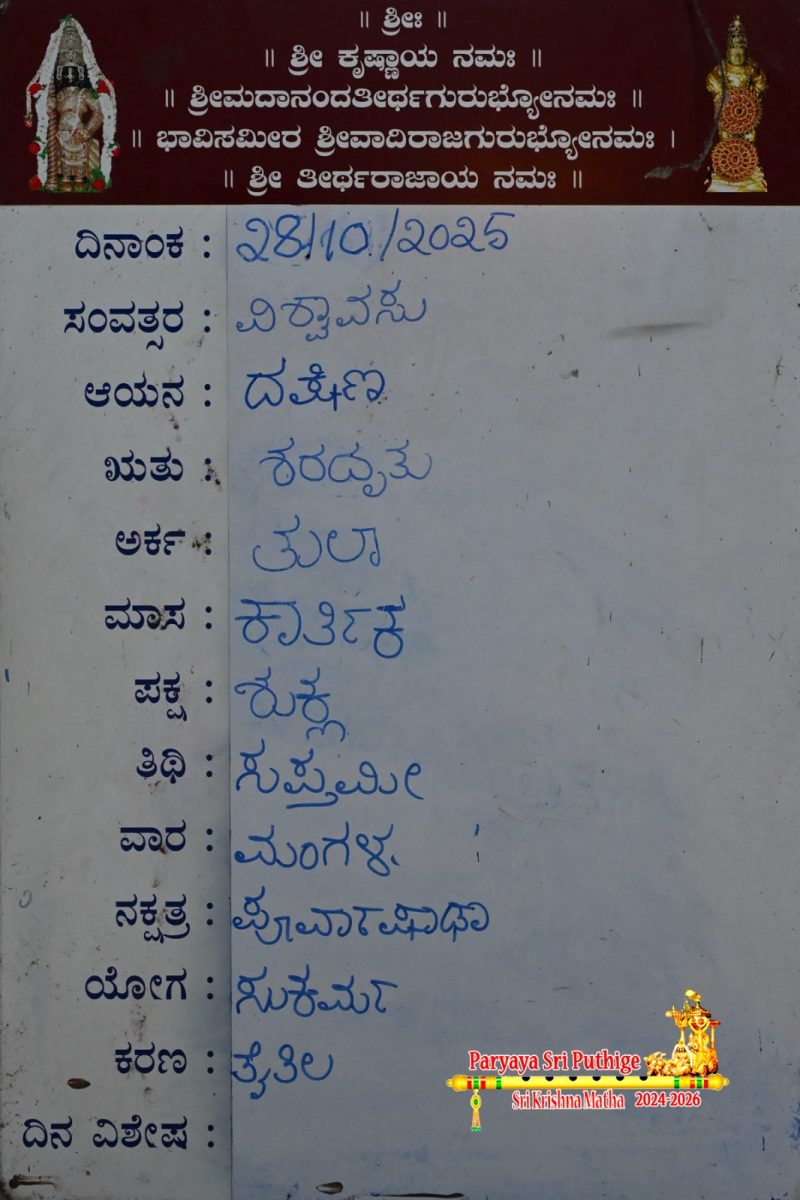 ॥ ಶ್ರೀಃ ॥
॥ ಶ್ರೀ ಕೃಷ್ಣಾಯ ನಮಃ ॥
॥ ಶ್ರೀಮದಾನಂದತೀರ್ಥಗುರುಭ್ಯೋನಮಃ ॥
॥ ಭಾವಿಸಮೀರ ಶ್ರೀವಾದಿರಾಜಗುರುಭ್ಯೋನಮಃ ।
॥ ಶ್ರೀ ತೀರ್ಥರಾಜಾಯ ನಮಃ ॥
ದಿನಾಂಕ : 28/10/2025
ಸಂವತ್ಸರ : ವಿಶ್ವಾವಸು
ಆಯನ : ದಕ್ಷಿಣ
ಋತು : ಶರದೃತು
ಅರ್ಕ : ತುಲಾ
ಮಾಸ : ಕಾರ್ತಿಕ
ಪಕ್ಷ : ಶುಕ್ಲ
ತಿಥಿ : ಸಪ್ತಮೀ
ವಾರ : ಮಂಗಳ.
ನಕ್ಷತ್ರ : ಪೂರ್ವಾಷಾಢಾ
ಯೋಗ : ಸುಕರ್ಮ
ಕರಣ : ತೈತಿಲ
ದಿನ ವಿಶೇಷ :
Paryaya Sri Puthige
Sri Krishna Matha 2024-2026